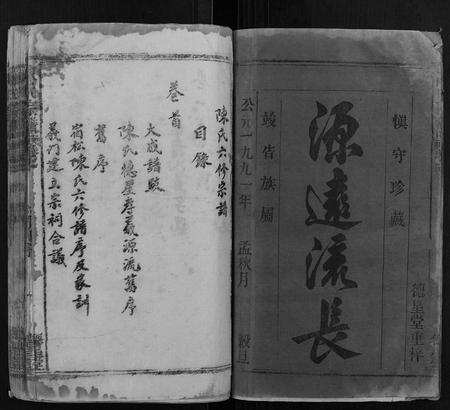 慎守珍藏
德星堂重梓
源遠流長
竣告族屬
公元一九九一年 孟秋月 穀旦
陳氏六修宗譜
目錄
卷首
大成譜
陳氏德星孝義源流舊序
舊序
宿松陳氏六修譜序及家訓
義門建立宗祠合議